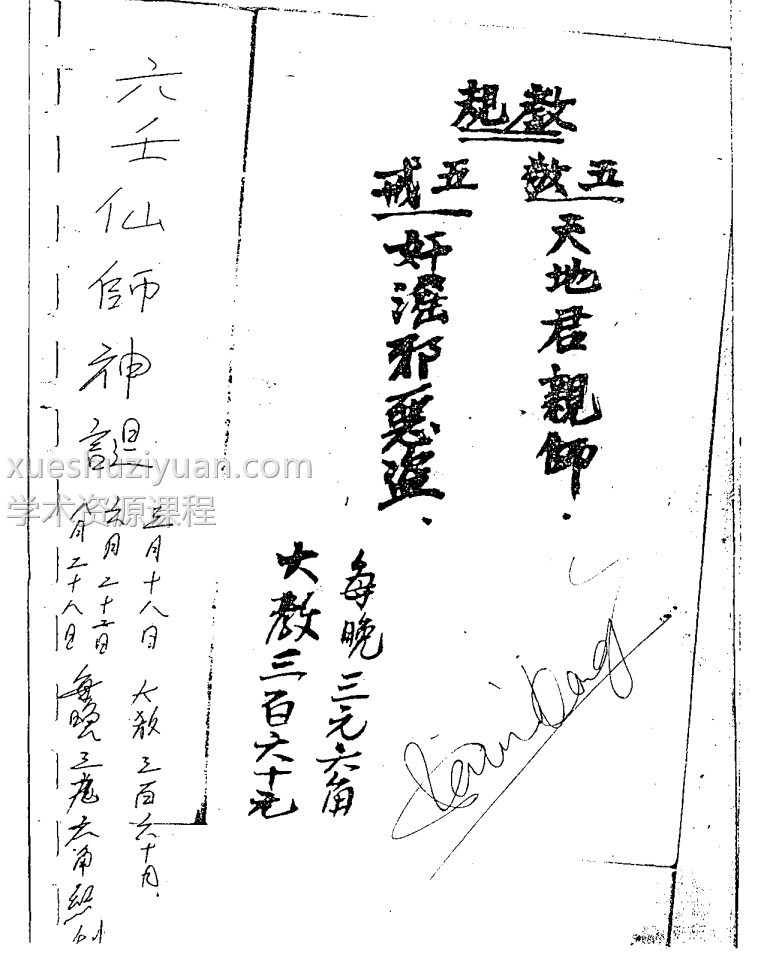 教規
五敬
天地君親師.
五戒
奸滛邪惡盜.
每晚三元六角
大教三百六十元
六壬仙師神誕
三月十八日 大教三百六十
六月二十二日
八月二十八日 每晚三元六角
xueshuziyuan.com
学术资源课程